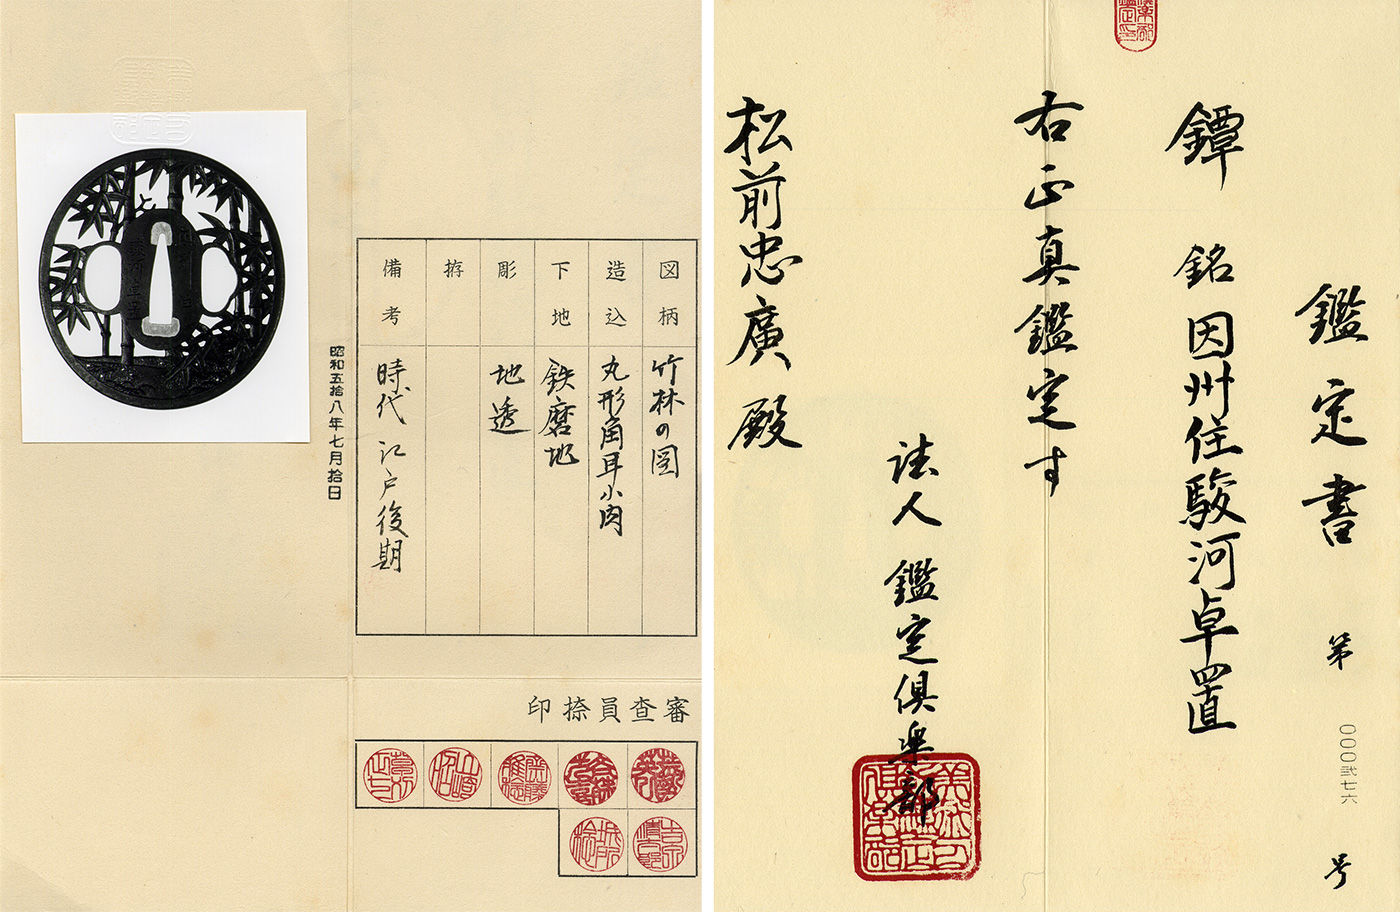 鑑定書 第〇〇〇弐七六号
鐔 銘 因州住駿河卓置
右正真鑑定す
法人 鑑定倶楽部
松前忠廣殿
図柄 竹林の図
造込 丸形角耳小肉
下地 鉄磨地
彫 地透
拵
備考 時代 江戸後期
昭和五拾八年七月拾日
審査員捺印